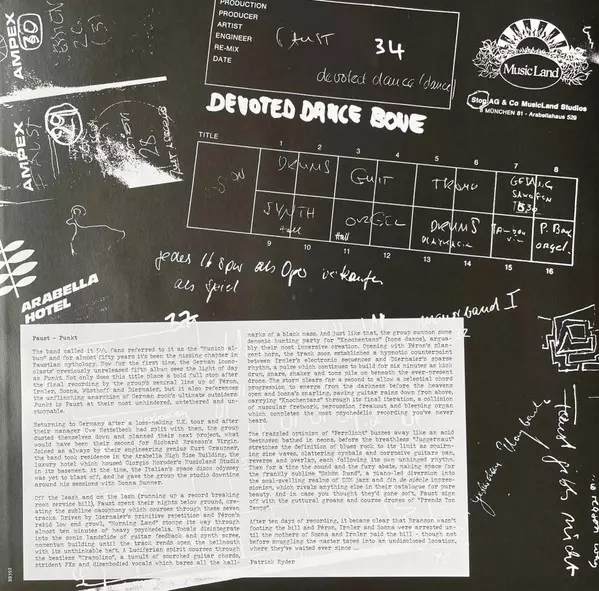 PRODUCTION
PRODUCER
ARTIST
ENGINEER
RE-MIX
DATE
34
devoted dance (dance)
AMPEX
30
AMPEX
FAUST
MusicLand
Stop AG & Co MusicLand Studios
8 MÜNCHEN 81 - Arabellahaus 529
DEVOTED DANCE BONE
TITLE
1 2 3 4 5 6 7 8
DRUMS GUIT
SYNTH Hall ORGEL Hall DRUMS P. Bax orgel.
9 10 11 12 13 14 15 16
jedes 16 spur als Oper verkaufen
als Spiel
ARABELLA
HOTEL
Faust - Punkt
The band called it 5½, fans referred to it as the "Munich al-
bum" and for almost fifty years it's been the missing chapter in
Faustian mythology. Now for the first time, the German icono-
clasts' previously unreleased fifth album sees the light of day
as Punkt. Not only does this title place a bold full stop after
the final recording by the group's seminal line up of Péron,
Irmler, Sosna, Wüsthoff and Diermaier, but it also references
the unflinching anarchism of German rock's ultimate outsiders.
Punkt is Faust at their most unhindered, untethered and un-
stoppable.
Returning to Germany after a loss-making U.K. tour and after
their manager Uwe Nettelbeck had split with them, the group
dusted themselves down and planned their next project, what
would have been their second for Richard Branson's Virgin.
Joined as always by their engineering genius Kurt Graupner,
the band took residence in the Arabella High Rise Building, the
luxury hotel which housed Giorgio Moroder's Musicland Studio
in its basement. At the time, the Italian's space disco odyssey
was yet to blast off, and he gave the group the studio downtime
around his sessions with Donna Summer.
Off the leash and on the lash (running up a record breaking
room service bill), Faust spent their nights below ground, cre-
ating the sublime cacophony which courses through these seven
tracks. Driven by Diermaier's primitive repetition and Péron's
rabid low end growl, "Morning Land" stomps its way through
almost ten minutes of heavy psychedelia. Vocals disintegrate
into the sonic landslide of guitar feedback and synth score,
momentum building until the track rends open the hellmouth
with its unthinkable heft. A Luciferian spirit courses through
the beatless "Crapolino", a tumult of scorched guitar chords,
strident FXs and disembodied vocals which bares all the hall-
marks of a black mass. And just like that, the group summon some
demonic hunting party for "Knochentanz" (bone dance), argua-
bly their most immersive creation. Opening with Péron's plan-
gent horn, the track soon establishes a hypnotic counterpoint
between Irmler's electronic sequences and Diermaier's sparse
rhythm, a pulse which continues to build for six minutes as kick
drum, snare, shaker and toms pile on beneath the ever-present
drone. The storm clears for a second to allow a celestial chord
progression to emerge from the darkness before the heavens
open and Sosna's snarling, saving guitar rains down from above,
carrying "Knochentanz" through its final iteration, a collision
of muscular fretwork, percussion freakout and bleeping organ
which completes the most psychedelic recording you've never
heard.
The frazzled optimism of "Fernlicht" buzzes away like an acid
Beethoven bathed in neons, before the breathless "Juggernaut"
stretches the definition of blues rock to its limit as squirm-
ing sine waves, clattering cymbals and corrosive guitars pan,
reverse and overlap, each following its own unhinged rhythm.
Then for a time the sound and the fury abate, making space for
the frankly sublime "Schön Rund", a piano-led diversion into
the soul-swelling realms of ECM jazz and fin de siècle impres-
sionism, which rivals anything else in their catalogue for pure
beauty. And in case you thought they'd gone soft, Faust sign
off with the guttural groans and coarse drones of "Prends Ton
Temps".
After ten days of recording, it became clear that Branson wasn't
footing the bill and Péron, Irmler and Sosna were arrested un-
til the mothers of Sosna and Irmler paid the bill - though not
before smuggling the master tapes into an undisclosed location,
where they've waited ever since ...
Patrick Ryder